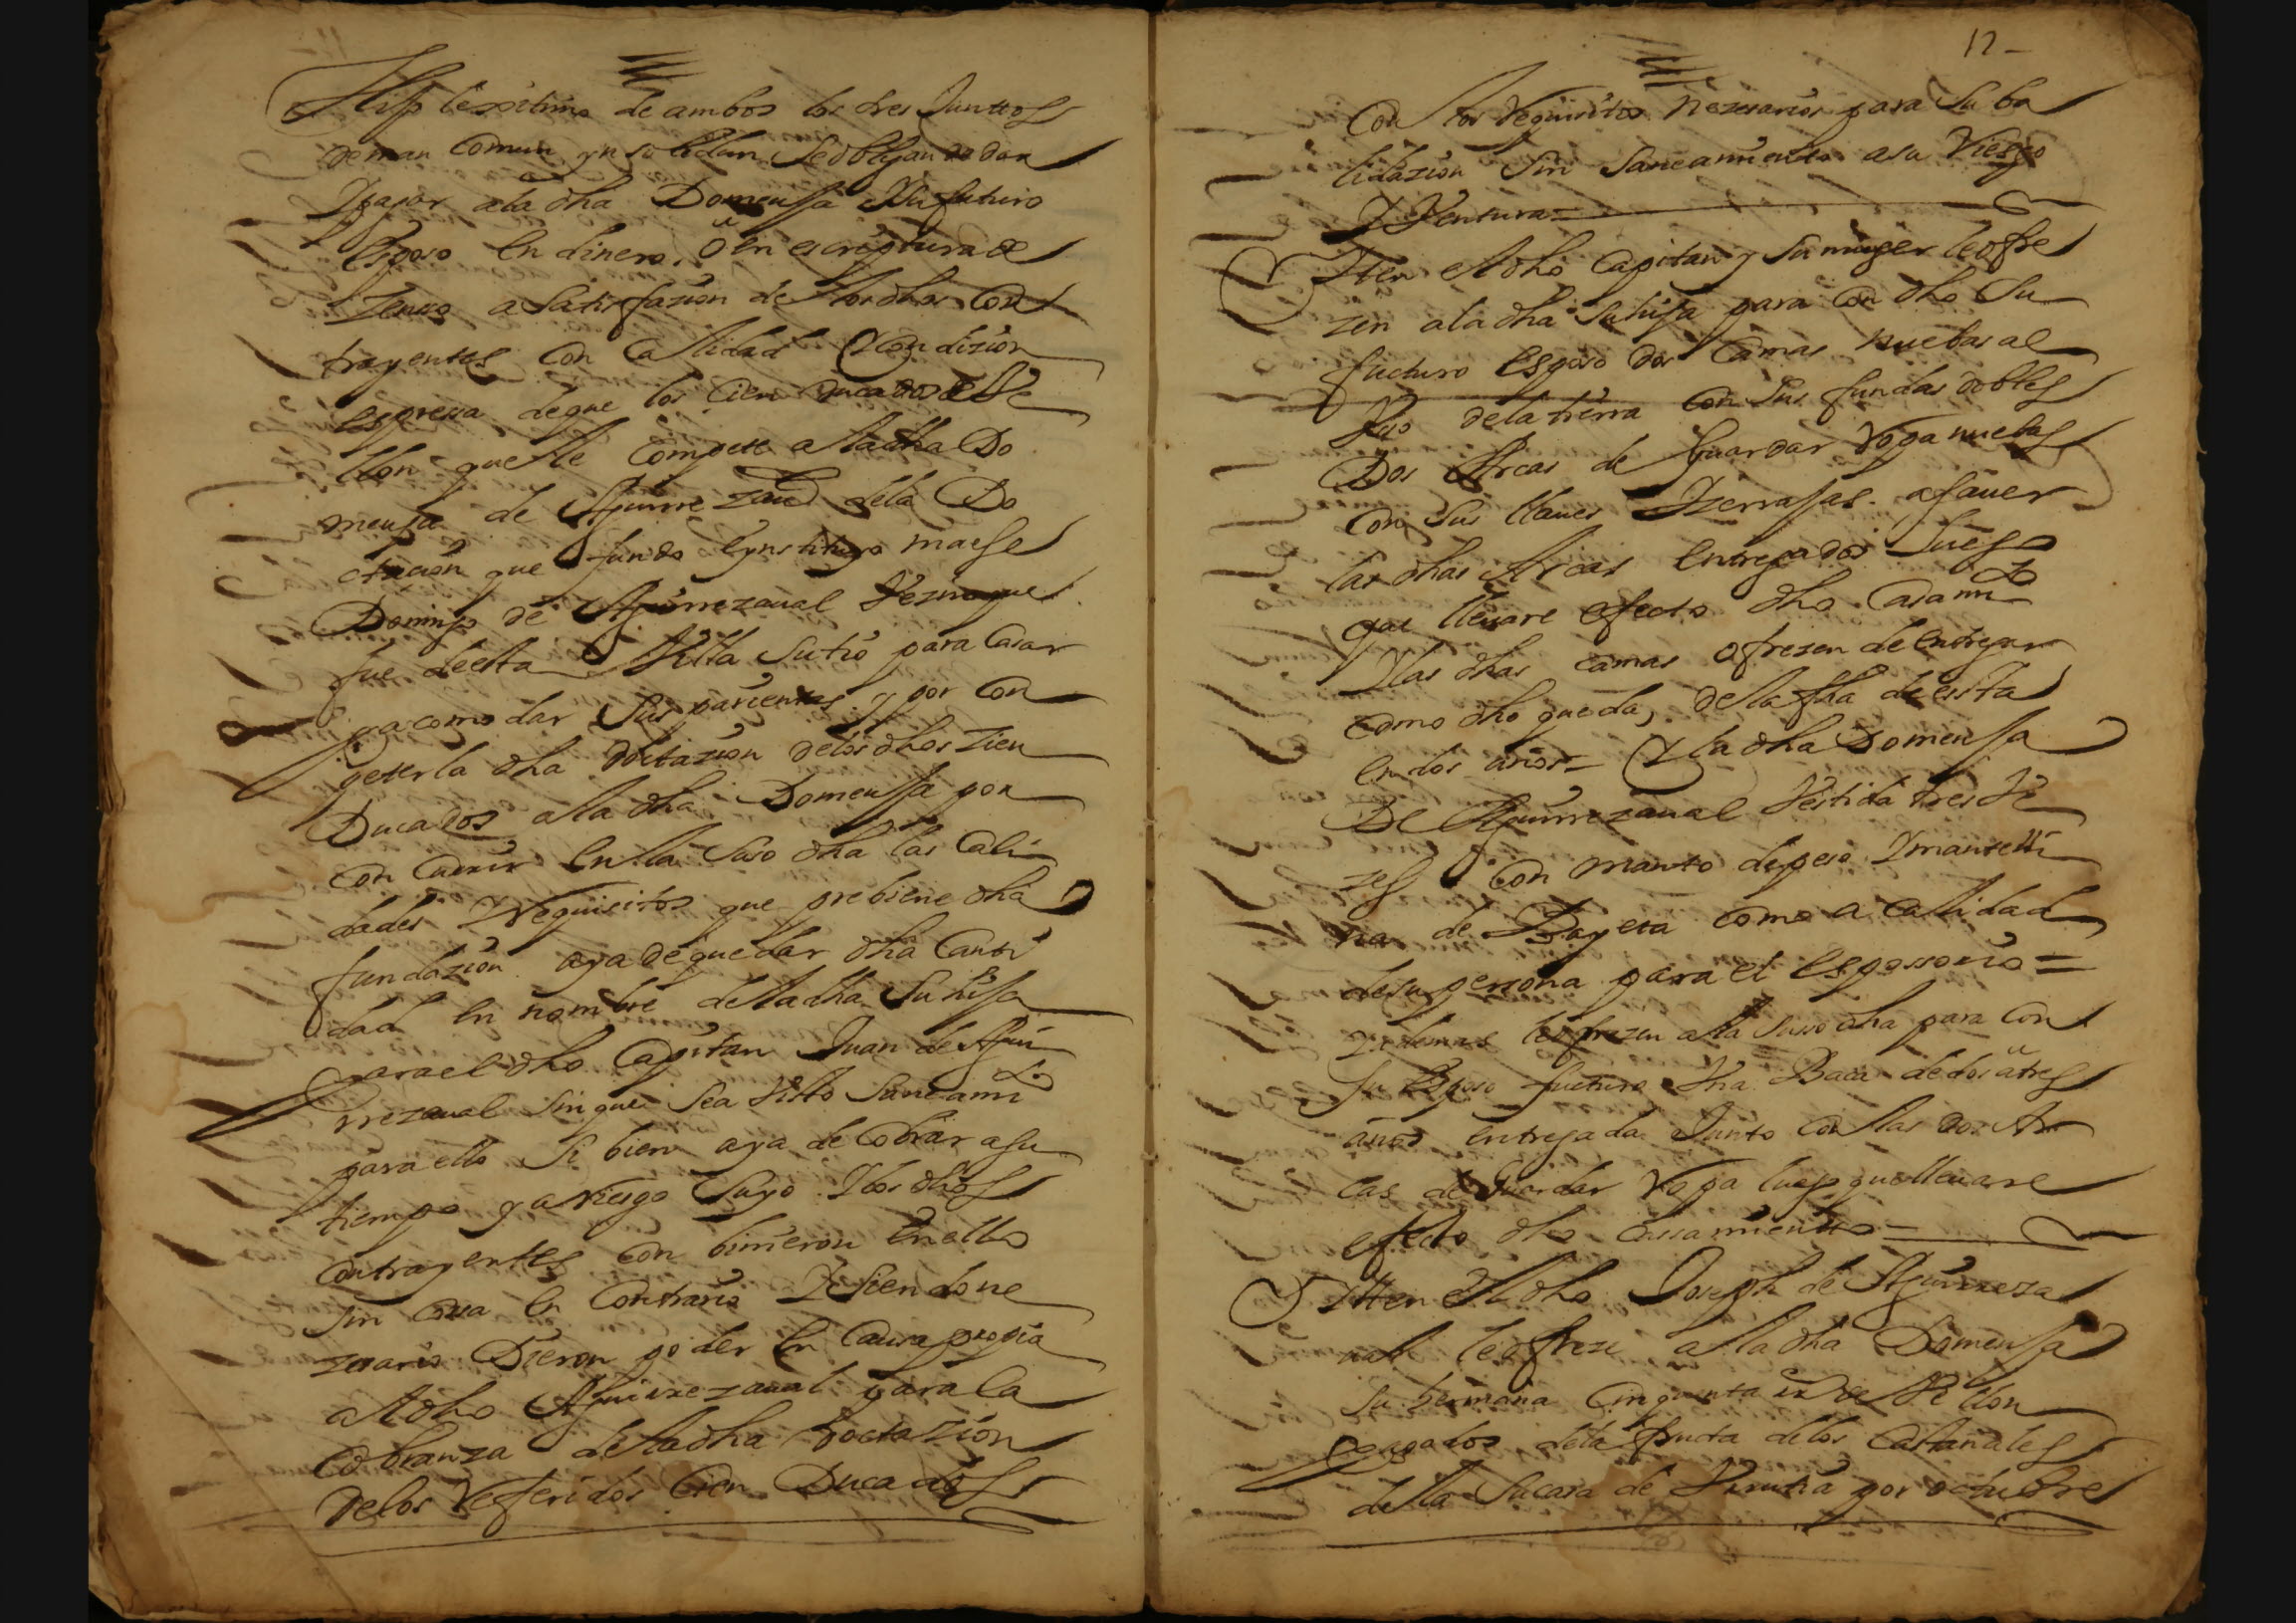 Hijo lexitimo de ambos los tres Junttos
de man Comun ynsolidun, se obligan de dar
Y pagar a la dha Domenssa Y su futuro
Esposo En dinero, ö en escriptura de
Zenso a Satisfazion de los dhos Con
trayentes Con Calidad Y Condizion
Espresa de que los Cien ducados de Ve
llon que le Compete a la dha Do
menja de Aguirrezaual de la Do
ctazion que fundo E ynstituyo maese
Domingo de Aguirrezaual Vezino que
fue de esta Villa Su tio para Casar
y acomodar Sus parientas y por Con
peterla dha doctazion de los dhos Zien
Ducados a la dha Domenssa por
Con Currir En la Suso dha las Cali
dades Y Requisitos que prebiene dha
fundazion aya de quedar dha Canti
dad En nombre de la dha Su hija
para el dho Capitan Juan de Agui
rrezaual Sin que Sea Visto Saneami to
para ello Si bien aya de Cobrar a su
tiempo y a Riesgo Suyo Y los dhos
Contrayentes Con binieron En ello
Sin Cosa En Contrario Y Siendo ne
zesario Dieron poder En Causa propia
al dho Aguirrezaual para la
Cobranza de la dha Doctazion
de los Referidos Cien Ducados
12-
Con los Requisitos Nezesarios para Su ba
lidazion Sin Saneamiento a su Riesgo
Y Ventura=
Yten el dho Capitan y Su muger le ofre
zen a la dha Su hija para Con dho Su
fucturo Esposo dos Camas nuebas al
Vso de la tierra Con Sus fundas dobles
Dos Arcas de Guardar Ropa nuebas
Con Sus llaues Y zerrajas a sauer
las dhas Arcas Entregados luego
que lleuare efecto dho Casami to
Y las dhas camas ofrezen de Entregar
como dho queda, de la fha de esta
En dos años= Y la dha Domenssa
De Aguirrezaual Vestida tres Ve
zes Con manto de peso Y mantelli
na de Bayeta Como a Calidad
de su persona para el Esposorio=
Y demas le ofrezen a la Suso dha para Con
Su Esposo fucturo Vna Baca de dos ä tres
años Entregada Junto Con las dos Ar
cas de Guardar Ropa luego que lleuare
efecto dho Cassamientto=
Ytten el dho Joseph de Aguirreza
ual le ofreze a la dha Domenssa
Su hermana Cinquenta de Vellon
pagados de la fruta de los Castañales
de la Su casa de por octubre